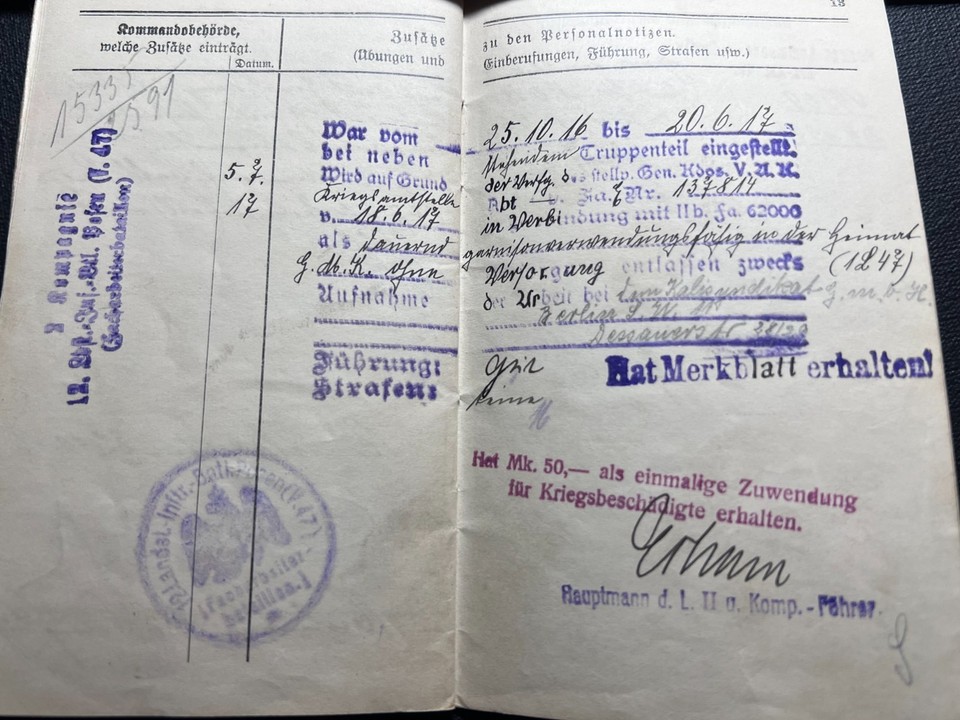 13
Kommandobehörde,
welche Zusätze einträgt.
Datum.
Zusätze zu den Personalnotizen.
(Übungen und Einberufungen, Führung, Strafen usw.)
15335
Kompagnie
12. Ldst.-Inf.-Btl. Posen (V. 47)
(Facharbeiterbataillon)
5. 7.
17
War vom 25. 10. 16 bis 20. 6. 17
bei nebenstehendem Truppenteil eingestellt.
Wird auf Grund der Verfg. d. stellv. Gen. Kdos. V. A. K.
Kriegsamtstelle Abt Nr. 137814
v. 18. 6. 17 in Verbindung mit II b. Ja. 62000
als dauernd garnisonverwendungsfähig in der Heimat
G. M. K. ohne Versorgung entlassen zwecks (1 L 47)
Aufnahme der Arbeit bei dem Kalisyndikat G. m. b. H.
Berlin S. W. 11
Dessauerstr 28/29
Führung: Gut
Strafen: Keine
Hat Merkblatt erhalten!
Hat Mk. 50,— als einmalige Zuwendung
für Kriegsbeschädigte erhalten.
Hauptmann d. L. II u. Komp.-Führer
12. Landst.-Inftr.-Batl. Posen (V. 47)
[Facharbeiter-
bataillon.]